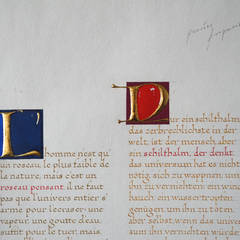 L'homme n'est qu'
un roseau, le plus faible de
la nature, mais c'est un
roseau pensant. il ne faut
pas que l'univers entier s'
arme pour l'écraser: une
vapeur, une goutte d'eau,
suffit pour le tuer. mais,
Nur ein schilfhalm,
das zerbrechlichste in der
welt, ist der mensch, aber
ein schilfhalm, der denkt.
das universum hat es nicht
nötig, sich zu wappnen, um
ihn zu vernichten: ein wind-
hauch, ein wassertropfen
genügen, um ihn zu töten.
aber selbst, wenn das univer-
sum ihn vernichten würde,